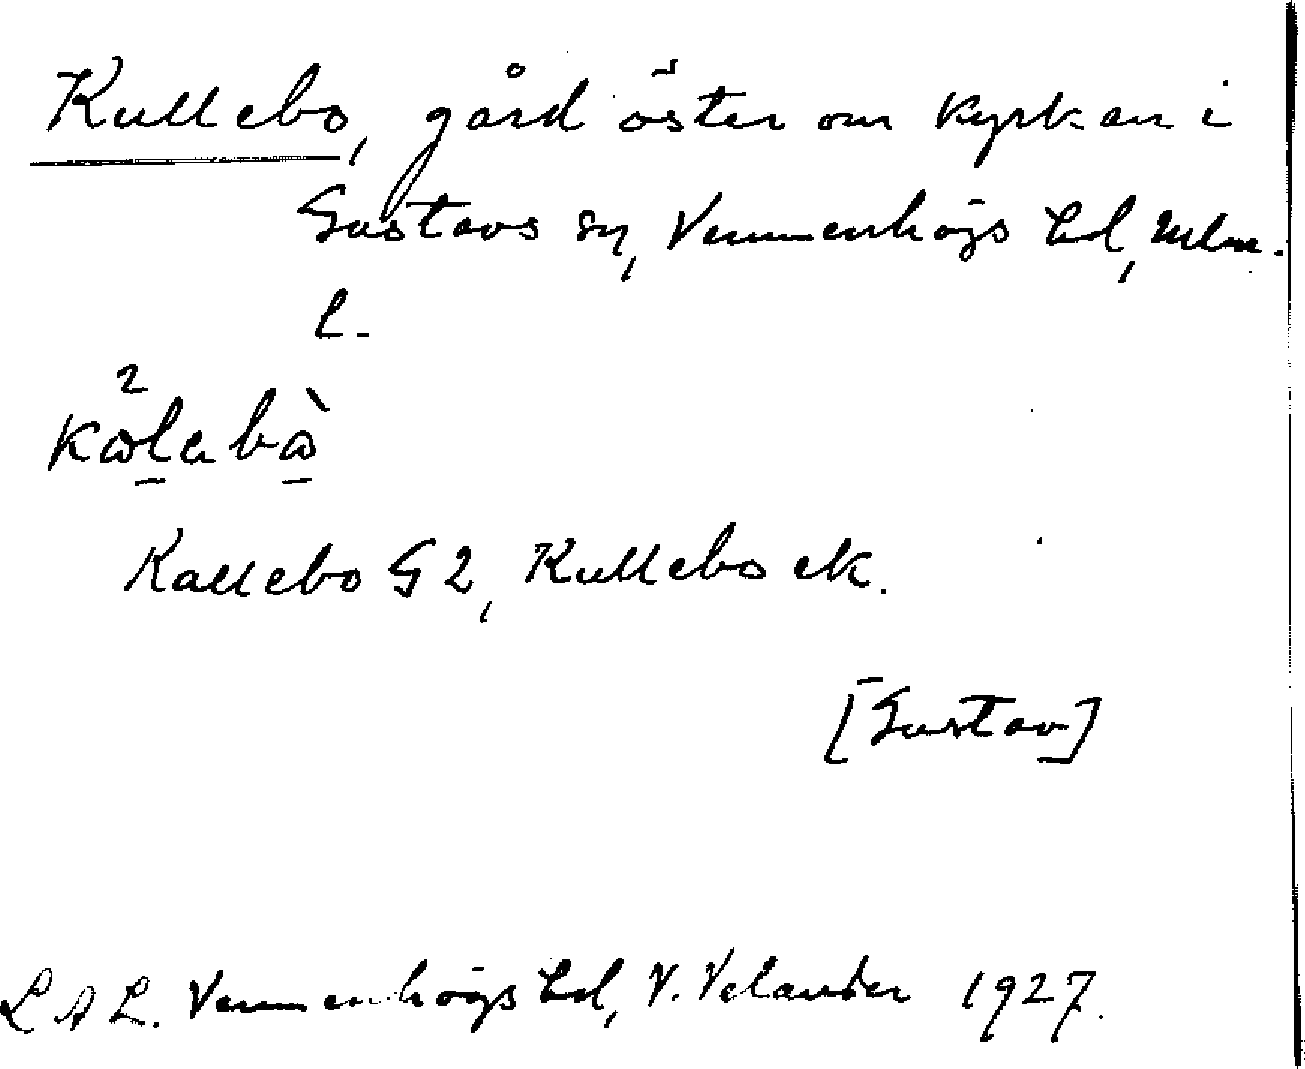 Kullebo, gård öster om kyrkan i
Gustavs sn, Vemmenhögs hd, Mlm.
l.
Kallebo G 2, Kullebo ek.
[Gustav]
LAL. Vemmenhögs hd, V. Velander 1927.